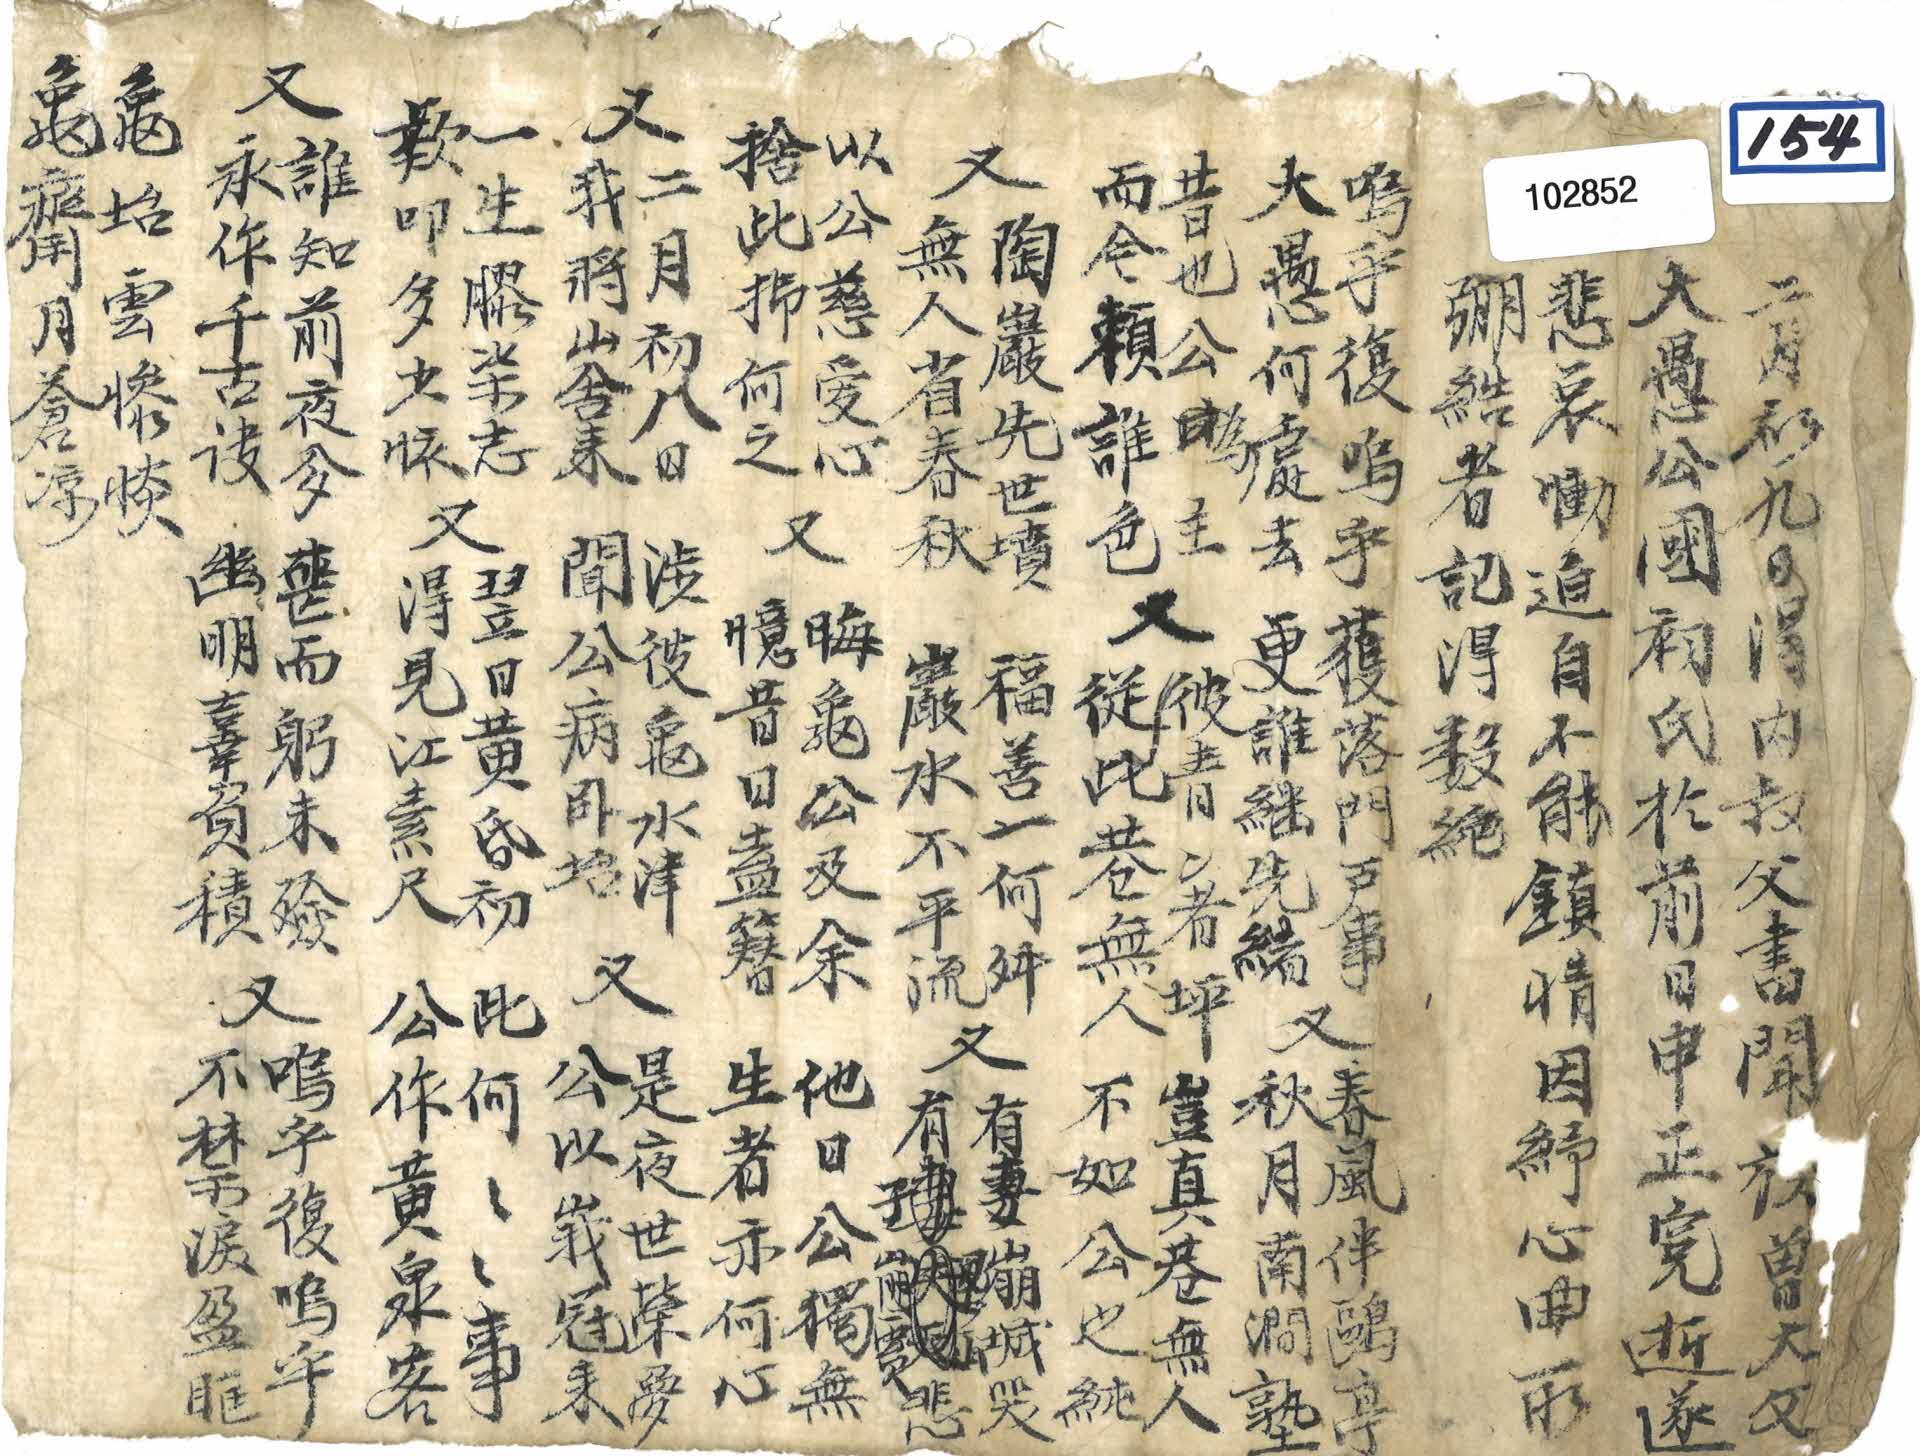 154
102852
二月初九日得內叔父書聞 族曾大父
大愚公國初氏於前日申正完逝遂
悲哀慟迫自不能鎭情因紓心曲所
弸結者記得數絶
嗚乎復嗚乎 獲落門戶事 又 春風伴鷗亭
大愚何處去 更誰繼先緖 秋月南澗塾
昔也公爲主 又 彼靑者坪 豈眞巷無人
而今賴誰色 從此巷無人 不如公也純
又 陶巖先世墳 福善一何舛 又 有妻崩城哭
無人省春秋 巖水不平流 有 悲
以公慈愛心 又 晦龜公及余 他日公獨無
捨此將何之 憶昔日盍簪 生者亦何心
又 二月初八日 涉彼龜水津 又 是夜世榮夢
我將山舍來 聞公病臥坮 公以峩冠來
一生膠柒志 又 翌日黃昏初 此何〻〻事
歎叩多少懷 得見江素尺 公作黃泉客
又 誰知前夜夢 喪而躬未殮 又 嗚乎復嗚乎
永作千古訣 幽明辜負積 不禁淚盈眶
龜坮雲慘惔
龜 月蒼凉